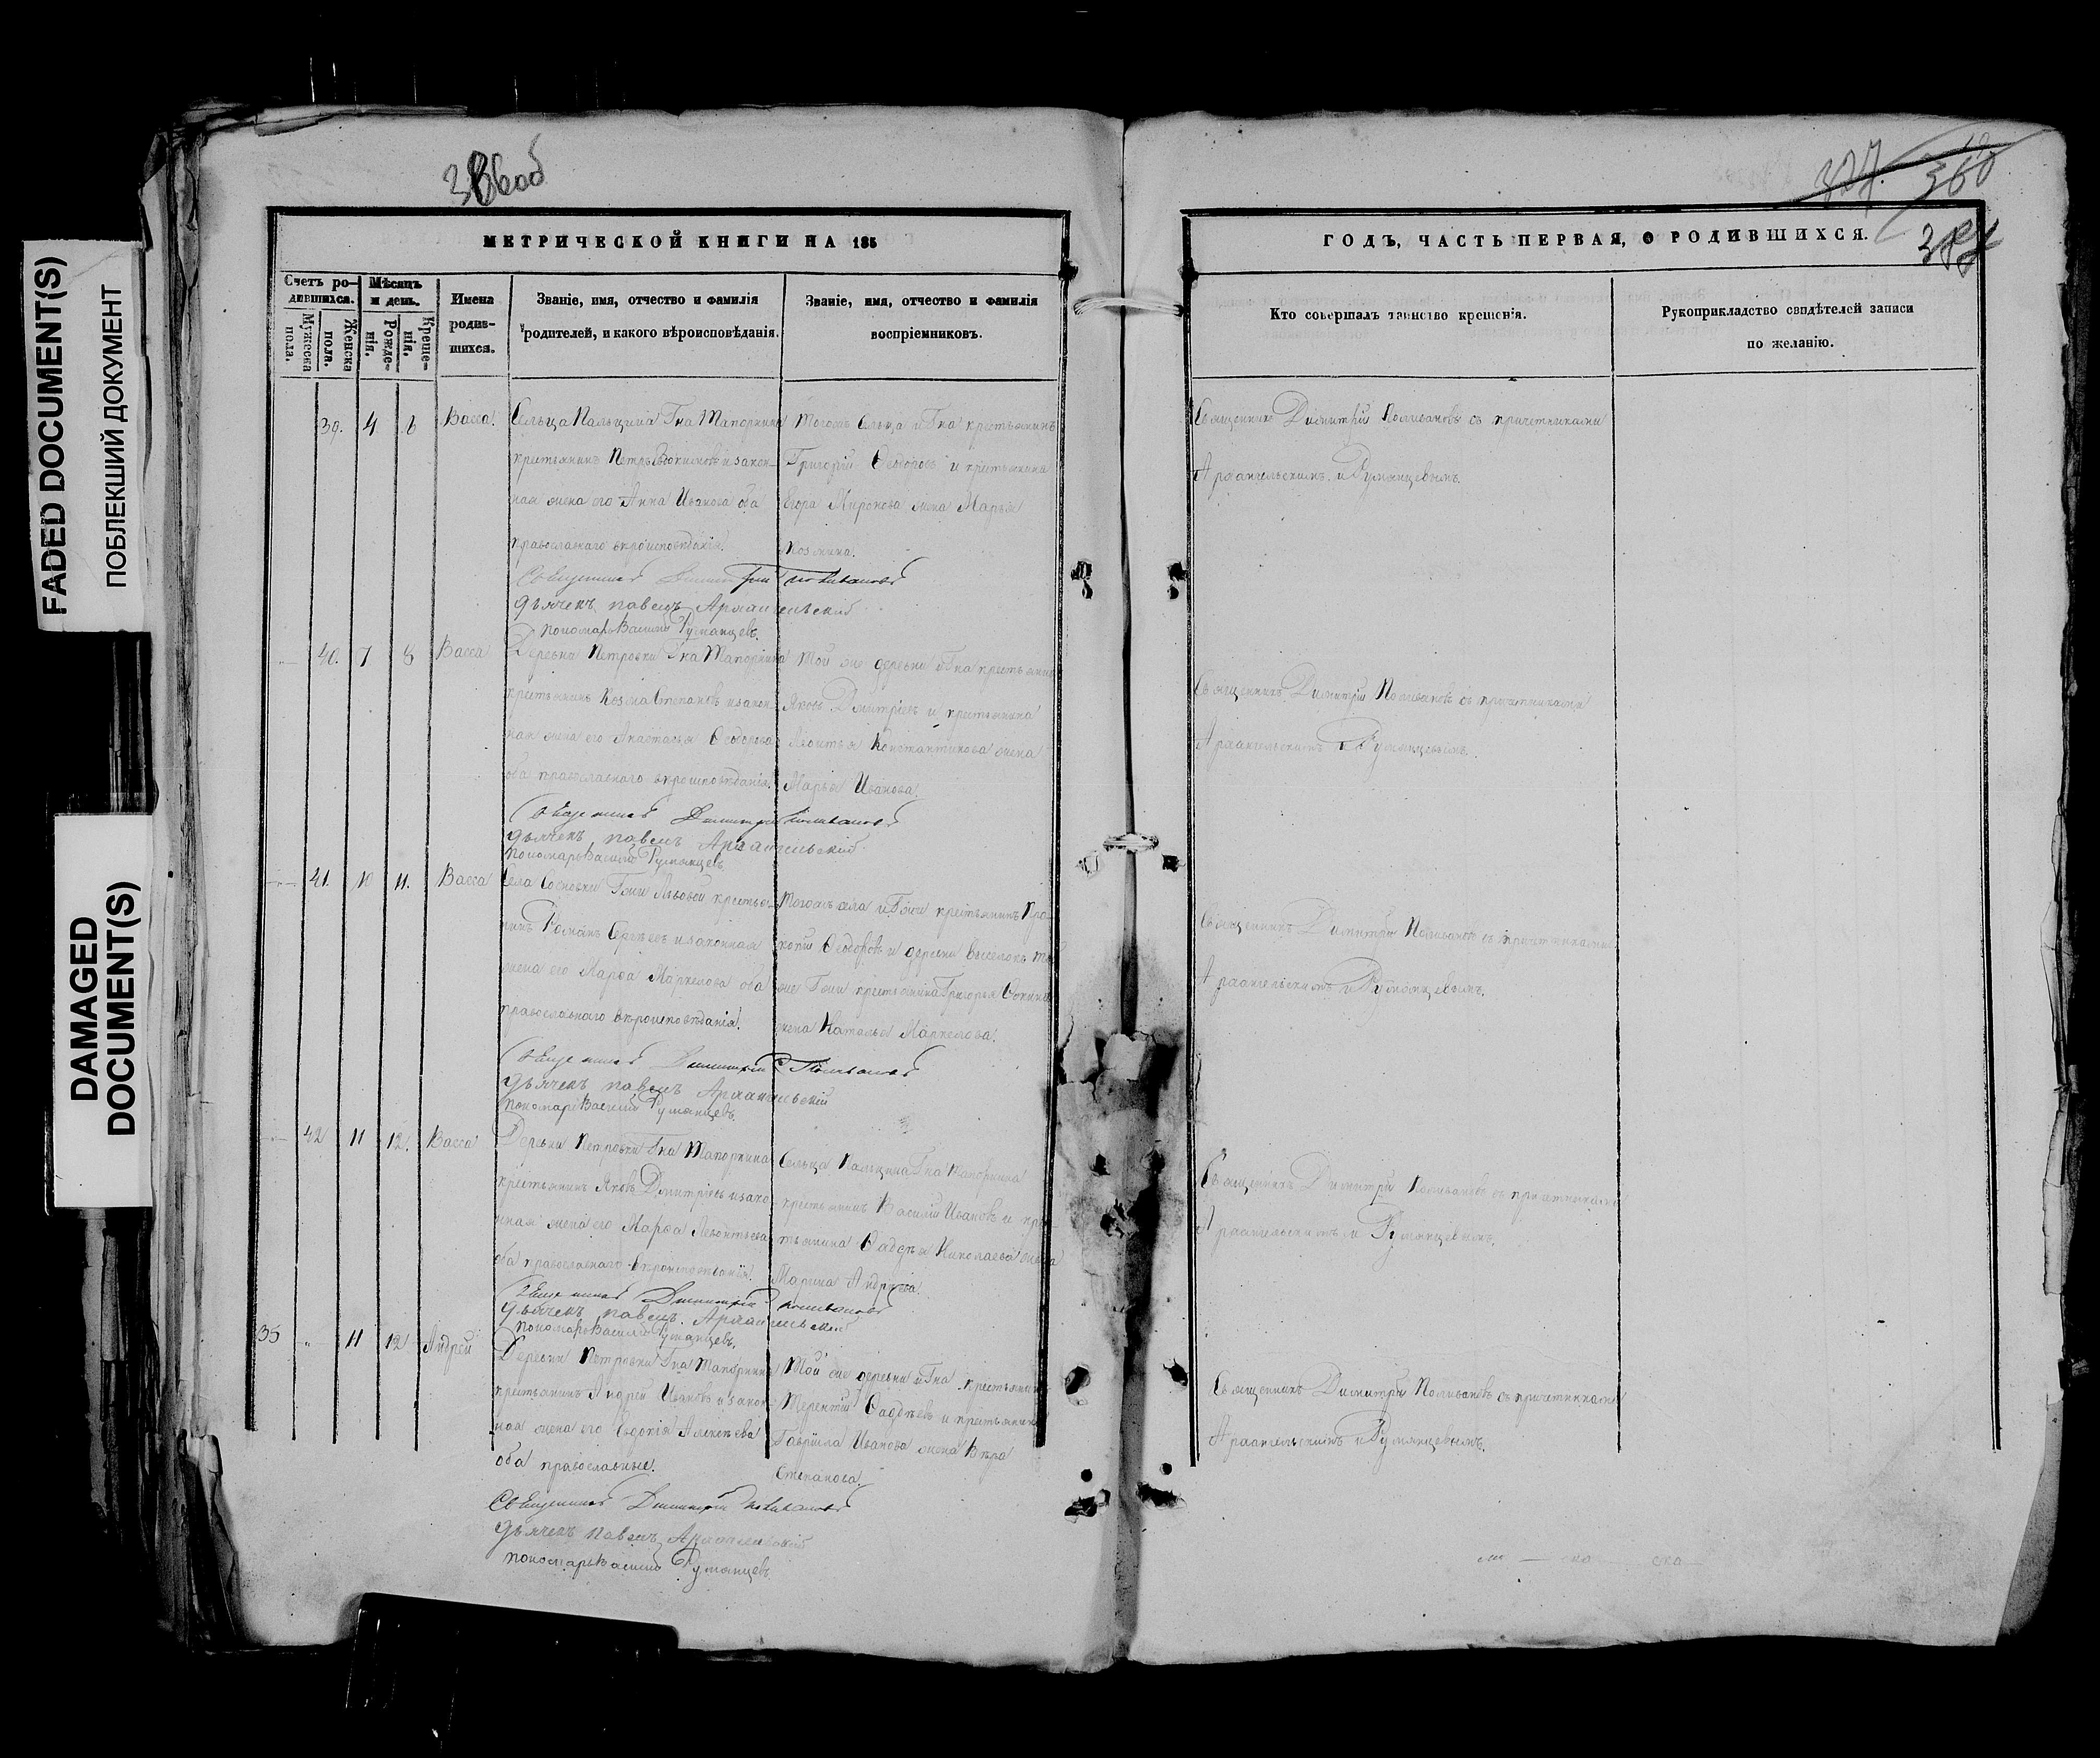 FADED DOCUMENT(S)
ПОБЛЕКШИЙ ДОКУМЕНТ
DAMAGED
DOCUMENT(S)
386об
МЕТРИЧЕСКОЙ КНИГИ НА 185
Счетъ ро-
дившихся.
Мѣсяцъ
и день.
Мужеска
пола.
Женска
пола.
Рожде-
нія.
Креще-
нія.
Имена
родив-
шихся.
Званіе, имя, отчество и фамилія
родителей, и какого вѣроисповѣданія.
Званіе, имя, отчество и фамилія
воспріемниковъ.
39. 4 6 Васса.
Сельца Пальцина Гна Тапоркина
крестьянинъ Петръ Евдокимовъ и закон-
ная жена его Анна Иванова оба
православнаго вѣроисповѣданія.
Тогожъ сельца и Гна крестьянинъ
Григорій Ѳеодоровъ и крестьянина
Егора Миронова жена Марья
Козмина.
Священникъ Димитрій Поливановъ
дьячекъ Павелъ Архангельскій
Пономарь Василій Румянцевъ.
40. 7 8 Васса
Деревни Петровки Гна Тапоркина
крестьянинъ Козма Степановъ и закон-
ная жена его Анастасья Ѳеодорова
оба православнаго вѣроисповѣданія.
Той же деревни и Гна крестьянинъ
Яковъ Дмитріевъ и крестьянина
Леонтья Константинова жена
Марья Иванова
Священникъ Димитрій Поливановъ
дьячекъ Павелъ Архангельскій
Пономарь Василій Румянцевъ.
41. 10 11. Васса
Села Сосновки Гжи Львовой крестья-
нинъ Романъ Сергѣевъ и законная
жена его Марѳа Маркелова оба
православнаго вѣроисповѣданія.
Тогожъ села и Гжи крестьянинъ Про-
копій Ѳеодоровъ и деревни Выселокъ той
же Гжи крестьянина Григорья
жена Наталья Маркелова.
Священникъ Димитрій Поливановъ
дьячекъ Павелъ Архангельскій
Пономарь Василій Румянцевъ.
42 11 12. Васса
Деревни Петровки Гна Тапоркина
крестьянинъ Яковъ Дмитріевъ и зако-
нная жена его Марѳа Леонтьева
оба православнаго вѣроисповѣданія.
Сельца Пальцина Гна Тапоркина
крестьянинъ Василій Ивановъ и крес-
тьянина Ѳадѣя Николаева жена
Марина Андреева.
Священникъ Димитрій Поливановъ
дьячекъ Павелъ Архангельскій
Пономарь Василій Румянцевъ.
35 " 11 12 Андрей
Деревни Петровки Гна Тапоркина
крестьянинъ Андрей Ивановъ и закон-
ная жена его Евдокія Алексѣева
оба православные.
Той же деревни и Гна крестьянинъ
Терентій Ѳадѣевъ и крестьянина
Гавріила Иванова жена Вѣра
Степанова
Священникъ Димитрій Поливановъ
дьячекъ Павелъ Архангельскій
Пономарь Василій Румянцевъ
327. 360
387
ГОДЪ, ЧАСТЬ ПЕРВАЯ, О РОДИВШИХСЯ.
Кто совершалъ таинство крещенія.
Рукоприкладство свидѣтелей записи
по желанію.
Священникъ Димитрій Поливановъ съ причетниками
Архангельскимъ и Румянцевымъ.
Священникъ Димитрій Поливановъ съ причетниками
Архангельскимъ и Румянцевымъ.
Священникъ Димитрій Поливановъ съ причетниками
Архангельскимъ и Румянцевымъ.
Священникъ Димитрій Поливановъ съ причетниками
Архангельскимъ и Румянцевымъ.
Священникъ Димитрій Поливановъ съ причетниками
Архангельскимъ и Румянцевымъ.